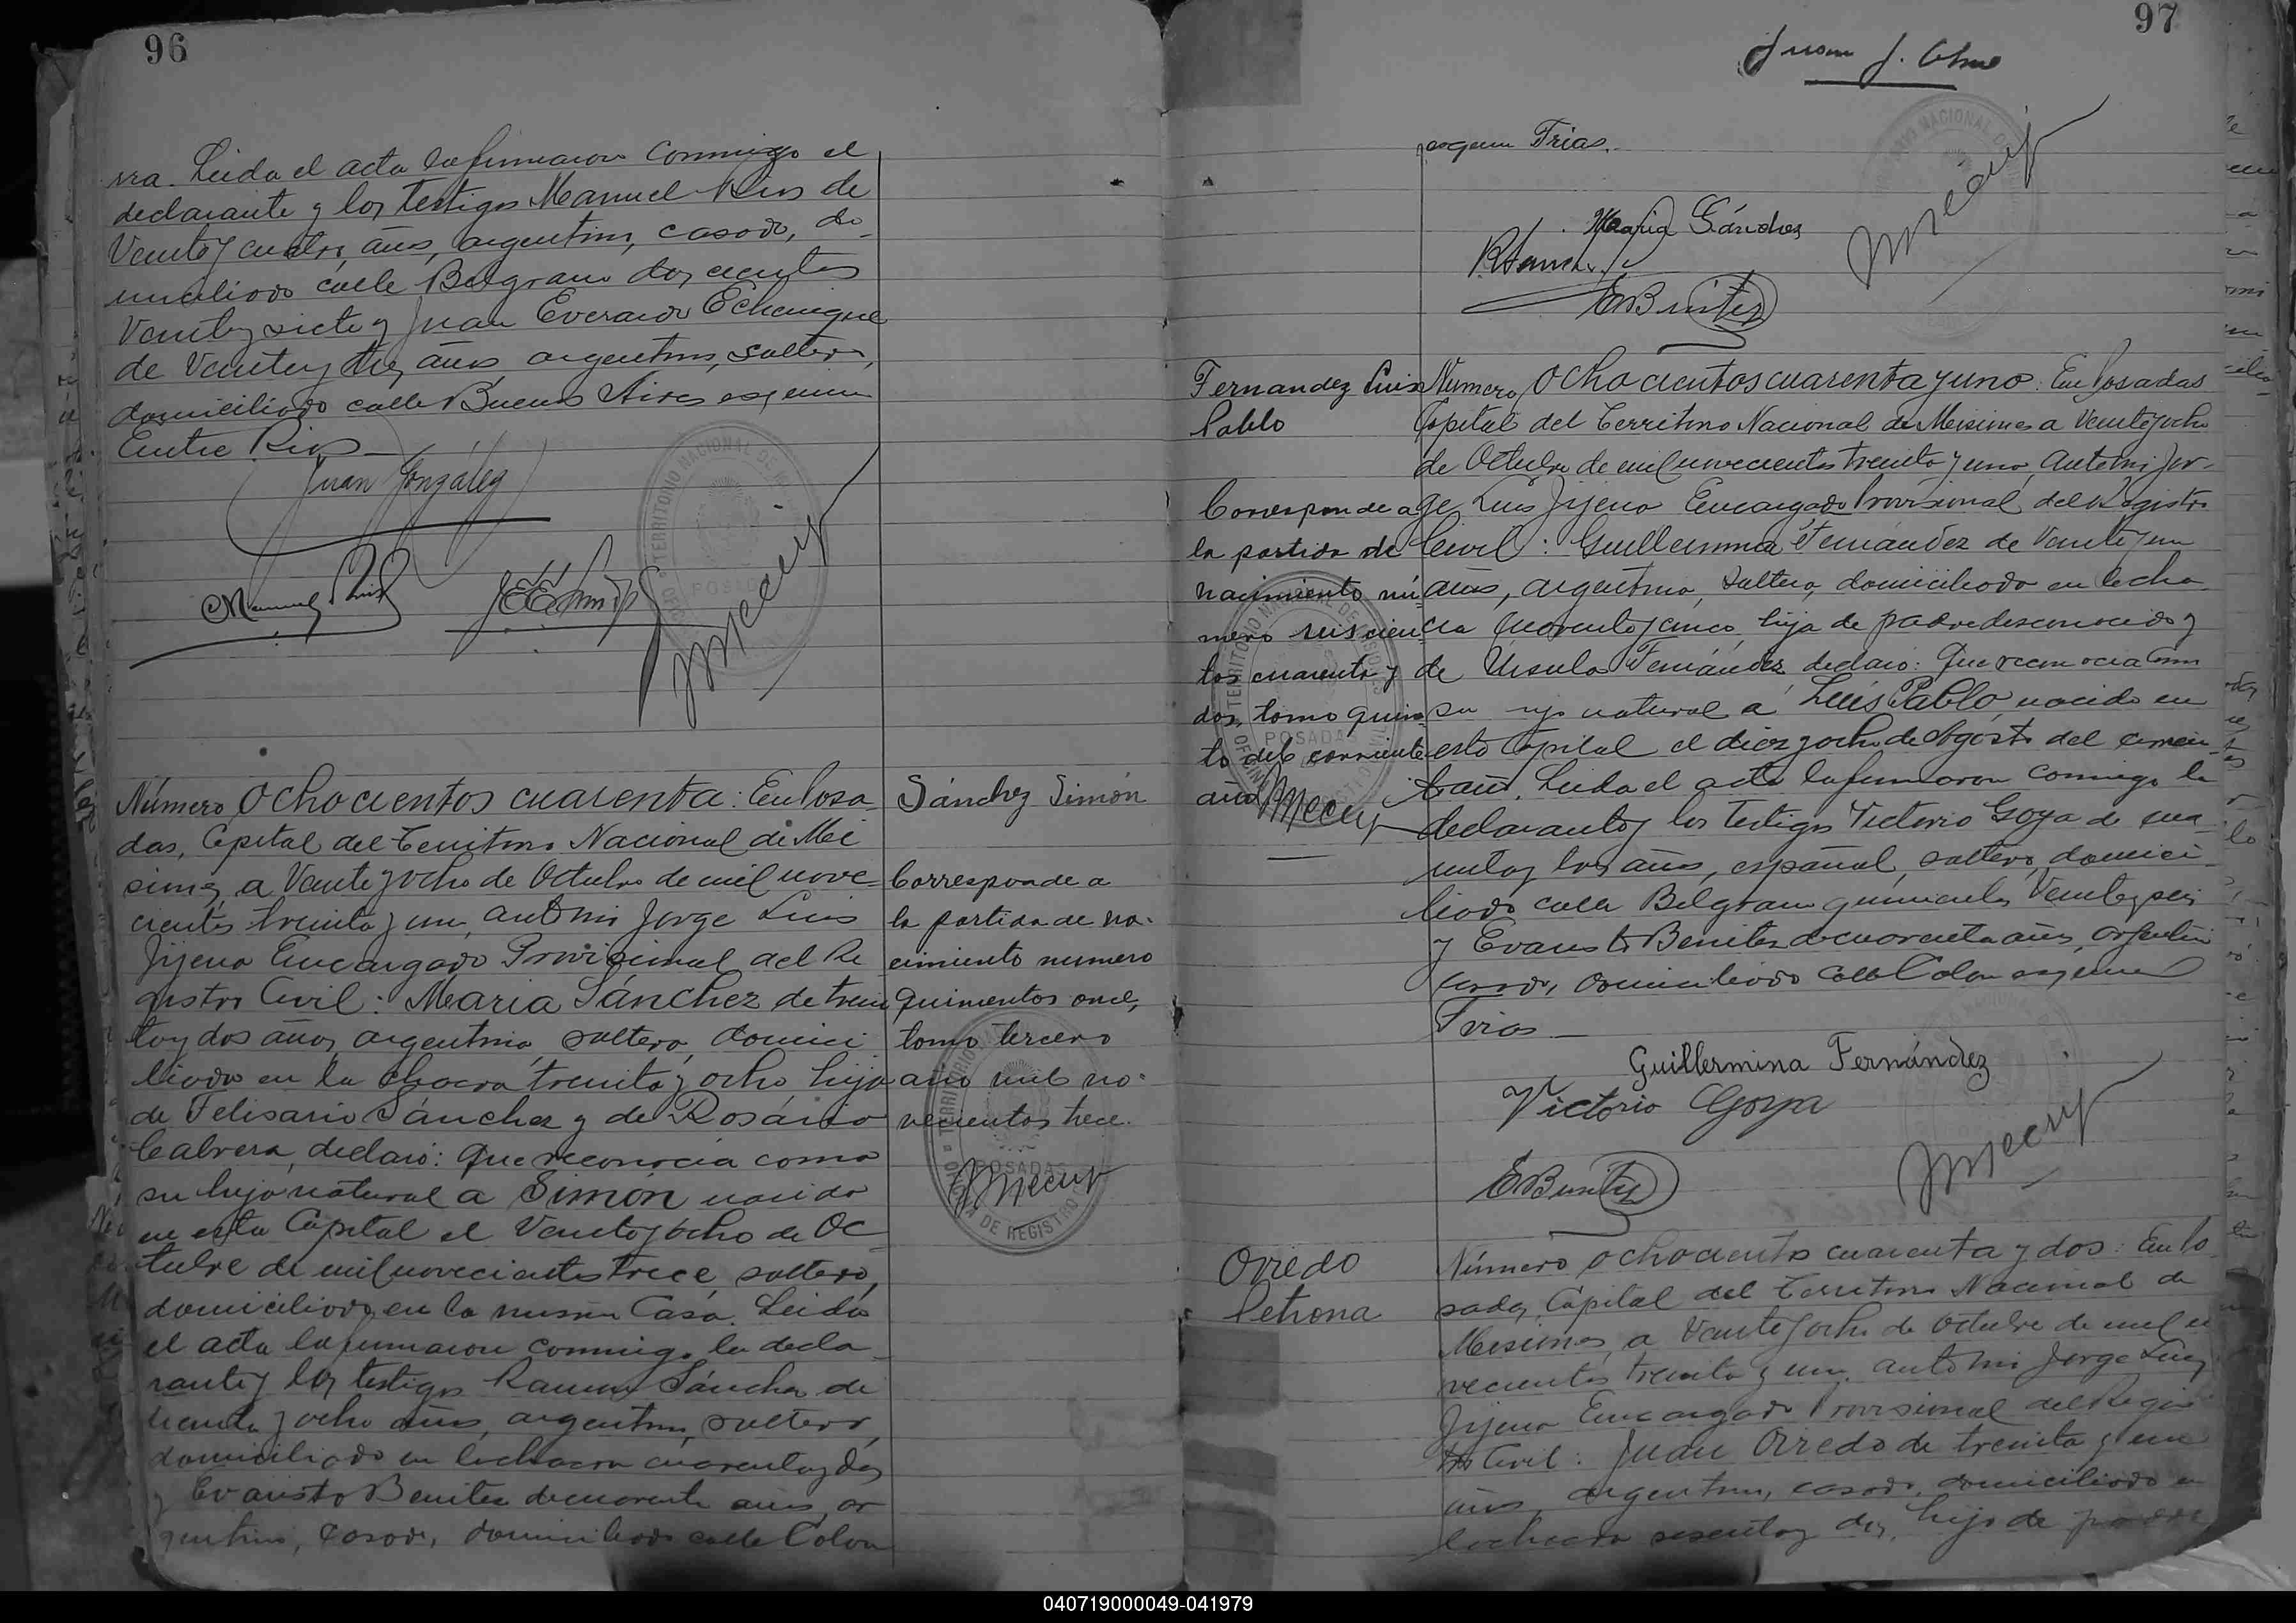 96
vra. Leida el acta la firmaron conmigo el
declarante y los testigos Manuel Rios de
Veinte y cuatro años, argentino, casado, do-
miciliado calle Belgrano doscientos
Veinte y siete y Juan Everardo Echenique
de Veinte y tres años argentino, soltero,
domiciliado calle Buenos Aires esquina
Entre Rios
Juan González
Número Ochocientos cuarenta: En Posa
das, Capital del Territorio Nacional de Mi
siones, a Veinte y ocho de Octubre de mil nove
cientos treinta y uno, ante mi Jorge Luis
Jijena Encargado Provisional del Re
gistro Civil: Maria Sánchez de trein
ta y dos años, argentina, soltera, domici
liada en la chacra treinta y ocho hija
de Felisario Sánchez y de Rosario
Cabrera, declaró: Que reconocia como
su hijo natural a Simón nacido
en esta Capital el Veinte y ocho de Oc
tubre de mil novecientos trece, soltero,
domiciliado en la misma Casa. Leida
el acta la firmaron conmigo la decla
rante y los testigos Ramon Sánchez de
treinta y ocho años, argentino, soltero,
domiciliado en la chacra cuarenta y dos
y Evaristo Benitez de cuarenta años, ar
gentino, casado, domiciliado calle Colon
Sánchez Simón
Corresponde a
la partida de na-
cimiento numero
quinientos once,
tomo tercero
año mil no-
vecientos trece.
TERRITORIO NACIONAL DE
POSADAS
97
Juan J.
esquina Frias.
Maria Sánchez
EBenitez
Fernandez Luis
Pablo
Corresponde a
la partida de
nacimiento nú-
mero seiscien
tos cuarenta y
dos, tomo quin
to del corriente
año
Número Ochocientos cuarenta y uno: En Posadas
Capital del Territorio Nacional de Misiones a Veinte y ocho
de Octubre de mil novecientos treinta y uno, ante mi Jor-
ge Luis Jijena Encargado Provisional del Registro
Civil: Guillermina Fernández de Veinte y un
años, argentina, soltera, domiciliada en la cha
cra cuarenta y cinco, hija de padre desconocido y
de Ursula Fernández declaró: Que reconocia como
su hijo natural a Luis Pablo, nacido en
esta Capital el diez y ocho de Agosto del corrien
te año. Leida el acta la firmaron conmigo la
declarante y los testigos Victorio Goya de cua
renta y dos años, español, soltero, domici-
liado calle Belgrano quinientos Veinte y seis
y Evaristo Benitez de cuarenta años, argentino
casado, domiciliado calle Colon esquina
Frias
Guillermina Fernández
Victorio Goya
EBenitez
Orredo
Petrona
Número ochocientos cuarenta y dos: En Po
sadas, Capital del Territorio Nacional de
Misiones, a Veinte y ocho de Octubre de mil no
vecientos treinta y uno, ante mi Jorge Luis
Jijena Encargado Provisional del Regis
tro Civil: Juan Orredo de treinta y un
años, argentino, casado, domiciliado en
la chacra sesenta y dos, hijo de padre
040719000049-041979